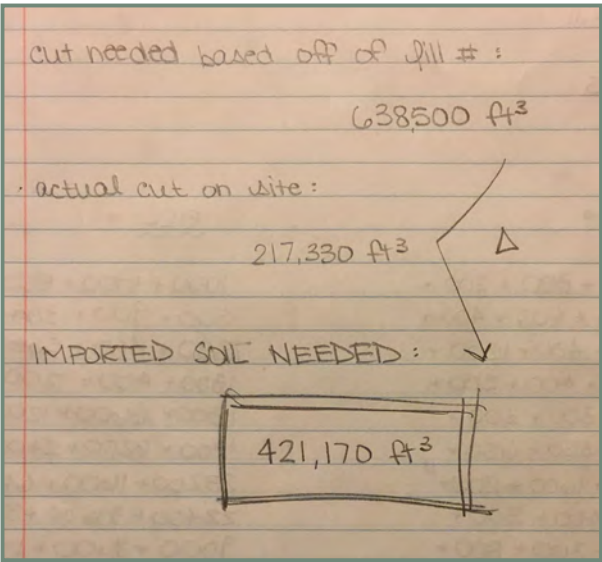 cut needed based off of fill # :
638,500 ft³
· actual cut on site :
217,330 ft³
Δ
IMPORTED SOIL NEEDED :
421,170 ft³